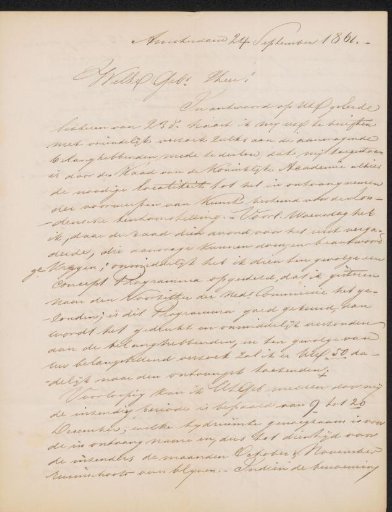 Amsterdam 24 September 1861.
WelEd Geb. Heer!
In antwoord op UEd geëerde
letteren van 23 dr. haast ik mij UEd te berigten
met vriendelijk verzoek zulks aan de aanvragende
belanghebbenden mede te deelen, dat mij toegestaan
is door den Raad van de Koninklijke Academie alhier
de noodige localiteit tot het in ontvangnemen
der voorwerpen van Kunst bestemd voor de Lon-
densche tentoonstelling. Voort Woensdag het
ik, daar de raad dien avond voor het eerst verga-
derde, die aanvrage kunnen doen en beantwoord
gekregen; onmiddelijk heb ik dien ten gevolge een
Concept Programma opgesteld, dat ik gisteren
naar den Voorzitter der Ned. Commissie heb ge-
zonden; is dit Programma goed gekeurd, dan
wordt het gedrukt en onmiddelijk verzonden
aan de belanghebbenden, en ten gevolge van
uw belangstellend verzoek zal ik er UEd 50 da-
delijk na den ontvangst toezenden.
Voorloopig kan ik UEdGeb melden dat
de inzending periode is bepaald van 9 tot 20
December, welke tijdruimte genoegzaam is voor
de in ontvang name en dus tot dien tijd voor
de inzenders de maanden October & November
blijven. Indien de